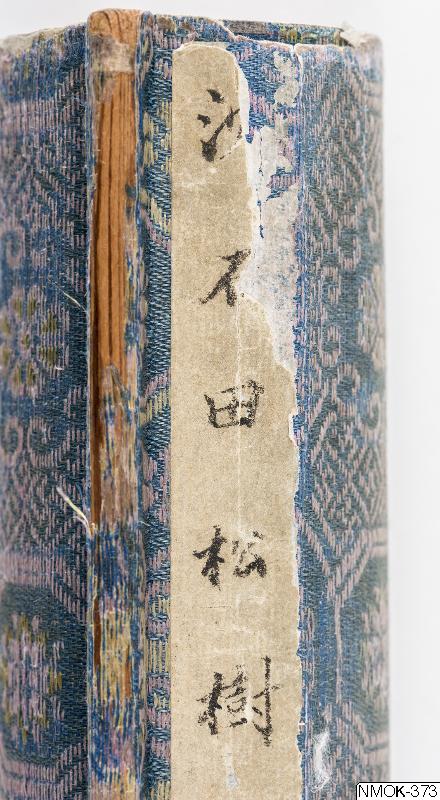 沈石田松樹
NMOK-373